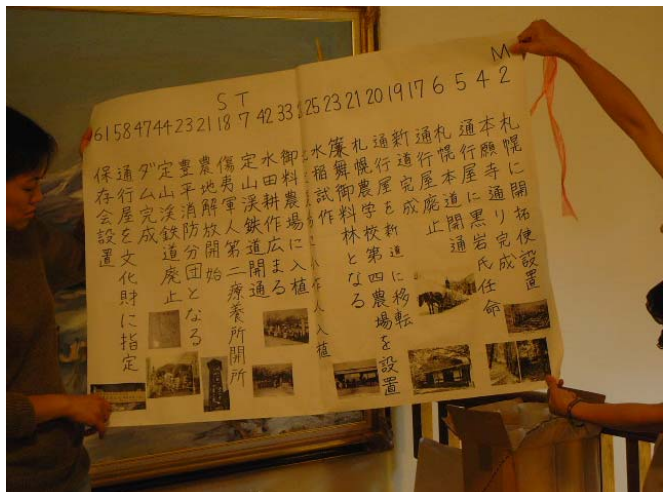 M2 札幌に開拓使設置
4 本願寺通り完成
5 通行屋に黒岩氏任命
6 札幌本道開通
17 通行屋廃止
19 新道完成
20 通行屋を新道に移転
21 札幌農学校第四農場を設置
23 簾舞御料林となる
25 水稲試作
人入植
33 御料農場に入植
42 水田耕作広まる
T7 定山渓鉄道開通
S18 傷夷軍人第二療養所開所
21 農地解放開始
23 豊平消防分団となる
44 定山渓鉄道廃止
47 ダム完成
58 通行屋を文化財に指定
61 保存会設置